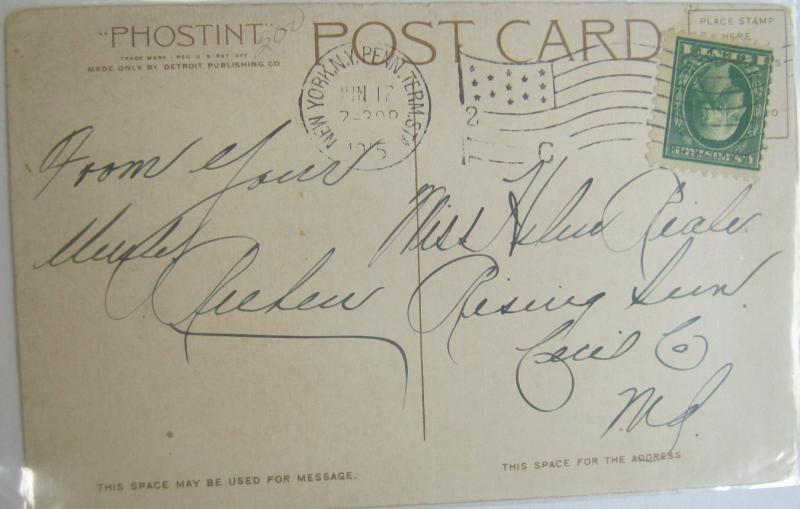 "PHOSTINT"
TRADE MARK - REG. U.S. PAT. OFF.
MADE ONLY BY DETROIT PUBLISHING CO
200
POST CARD
PLACE STAMP
HERE
NEW YORK, N.Y. PENN. TERM. STA.
JUN 17
7-30P
1915
2
C
U.S. POSTAGE
1 CENT 1
From Your
Uncle
Reuben
Miss Helen
Rising Sun
Cecil Co
Md.
THIS SPACE MAY BE USED FOR MESSAGE.
THIS SPACE FOR THE ADDRESS